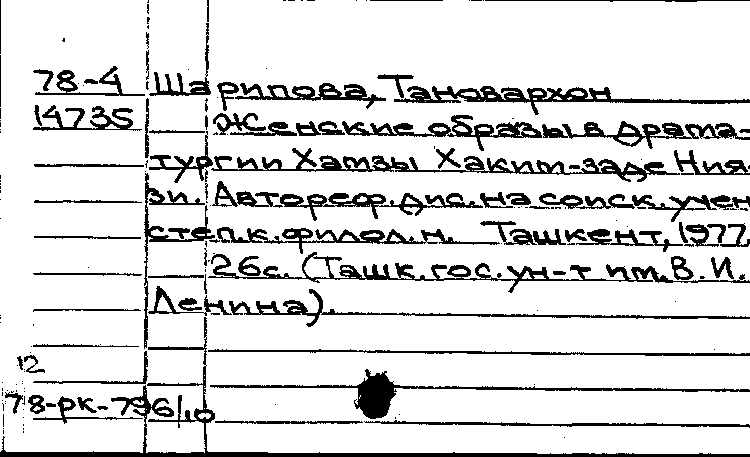 78-4 Шарипова, Тановархон
14735 Женские образы в драма-
тургии Хамзы Хаким-заде Ния-
зи. Автореф. дис. на соиск. учен
степ. к. филол. н. Ташкент, 1977.
26с. (Ташк. гос. ун-т им. В. И.
Ленина).
12
78-рк-796/10